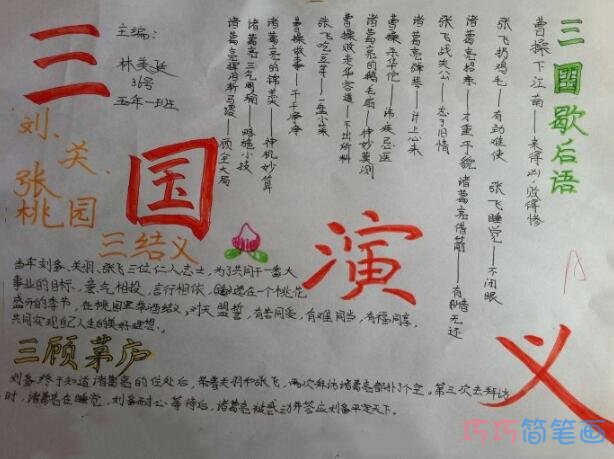 三国演义
主编：
林美延
36号
五年一班
刘、关、
张
桃园
三结义
当年刘备、关羽、张飞三位仁人志士，为了共同干一番大
事业的目标，意气相投，言行相依，在一个桃花
盛开的季节，在桃园里举酒结义，对天盟誓，有苦同受，有难同当，有福同享，
共同实现自己人生的美好理想。
三顾茅庐
刘备终于知道诸葛亮的住处后，带着关羽和张飞，两次拜访诸葛亮都扑了个空。第三次去拜访
时，诸葛亮在睡觉，刘备耐心等待后，诸葛亮被感动并答应刘备平定天下。
三国歇后语
曹操下江南——来得凶，败得惨
张飞扔鸡毛——有劲难使 张飞睡觉——不闭眼
诸葛亮招亲——才重于貌 诸葛亮借箭——有借无还
张飞战关公——忘了旧情
诸葛亮弹琴——计上心来
曹操杀华佗——讳疾忌医
诸葛亮的鹅毛扇——神妙莫测
曹操败走华容道——不出所料
张飞吃豆芽——一盘小菜
曹操做事——干干净净
诸葛亮的锦囊——神机妙算
诸葛亮三气周瑜——略施小技
诸葛亮挥泪斩马谡——顾全大局
A
巧巧简笔画